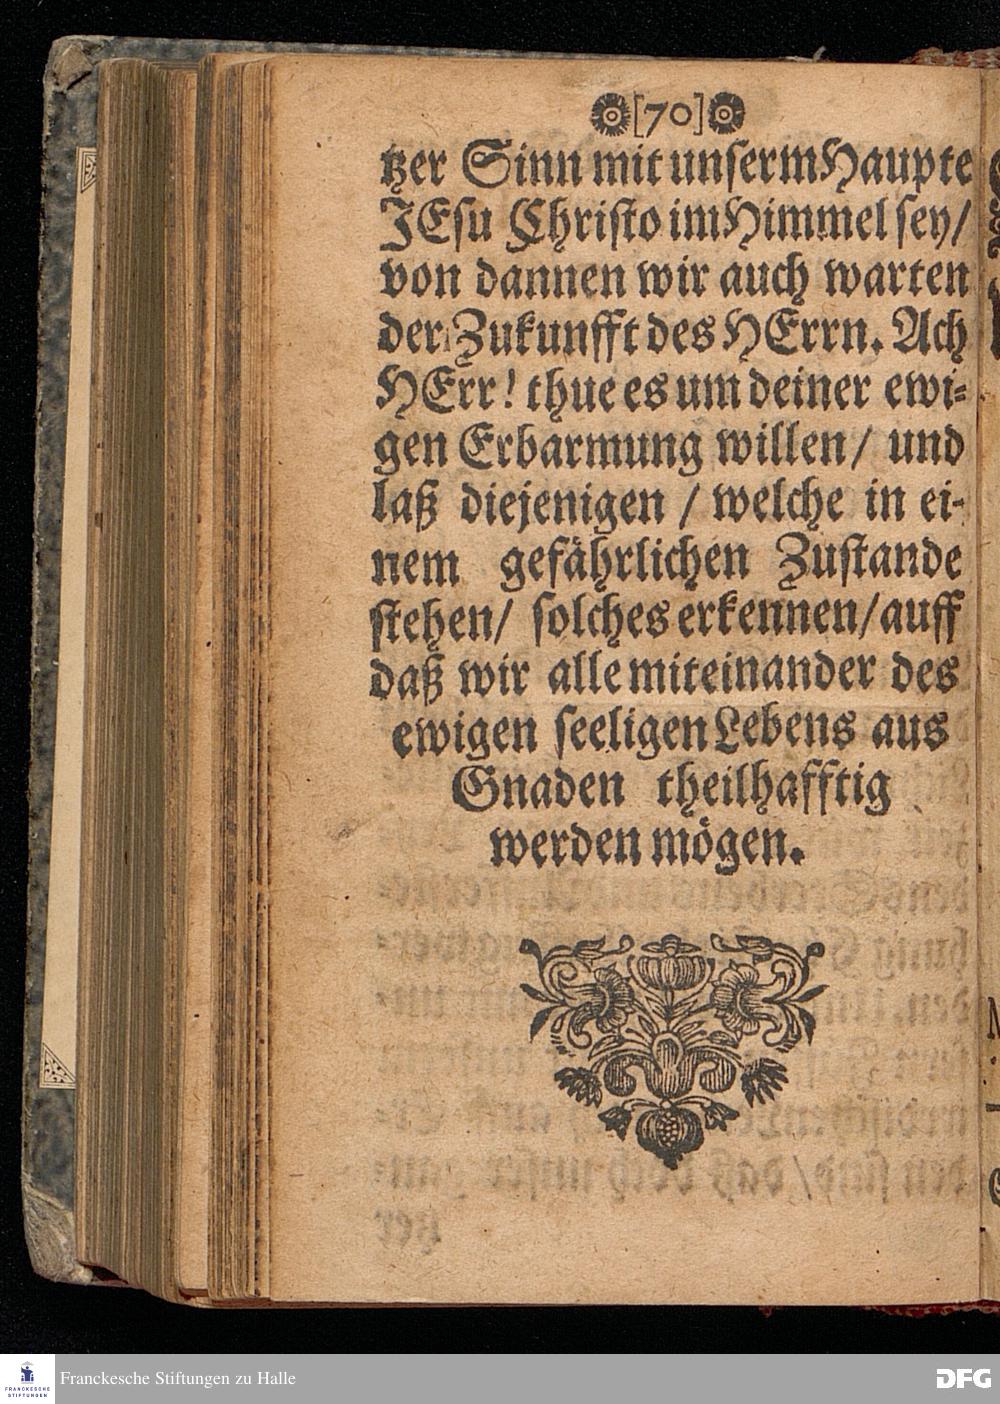 [70]
tzer Sinn mit unserm Haupte
JEsu Christo im Himmel sey/
von dannen wir auch warten
der Zukunfft des HErrn. Ach
HErr! thue es um deiner ewi-
gen Erbarmung willen/ und
laß diejenigen / welche in ei-
nem gefährlichen Zustande
stehen/ solches erkennen/ auff
daß wir alle miteinander des
ewigen seeligen Lebens aus
Gnaden theilhafftig
werden mögen.
FRANCKESCHE
STIFTUNGEN
Franckesche Stiftungen zu Halle
DFG